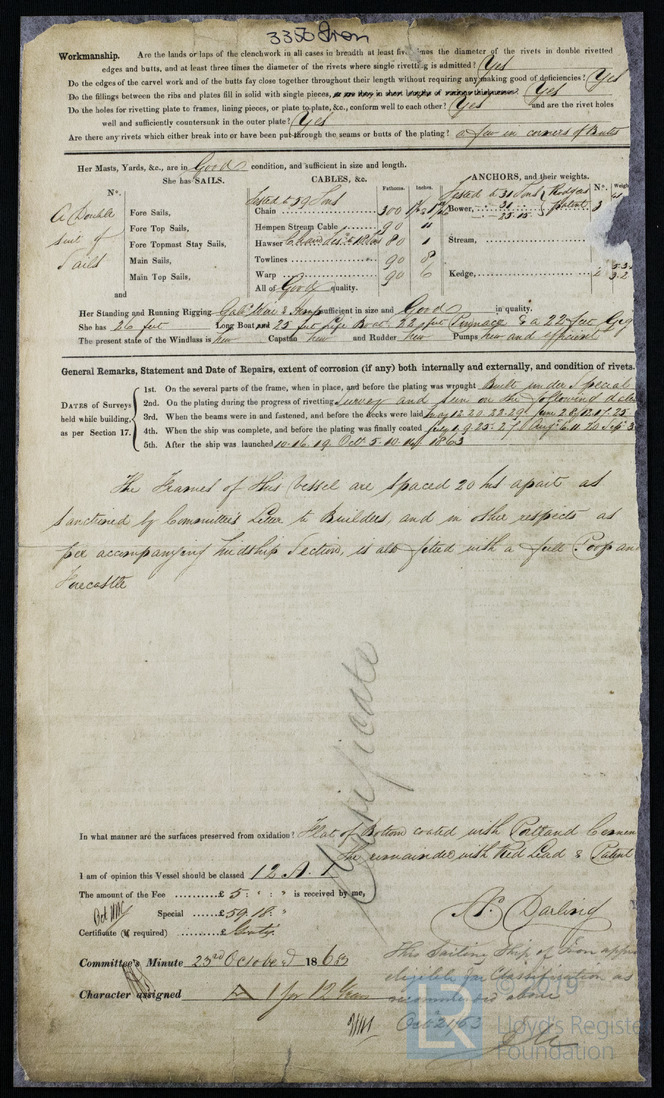 3356 Iron
Workmanship. Are the lands or laps of the clenchwork in all cases in breadth at least five times the diameter of the rivets in double rivetted
edges and butts, and at least three times the diameter of the rivets where single rivetting is admitted? Yes
Do the edges of the carvel work and of the butts fay close together throughout their length without requiring any making good of deficiencies? Yes
Do the fillings between the ribs and plates fill in solid with single pieces, Yes
Do the holes for rivetting plate to frames, lining pieces, or plate to plate, &c., conform well to each other? Yes and are the rivet holes
well and sufficiently countersunk in the outer plate? Yes
Are there any rivets which either break into or have been put through the seams or butts of the plating? a few in corners of Butts
Her Masts, Yards, &c., are in Good condition, and sufficient in size and length.
She has SAILS. CABLES, &c. Fathoms. Inches. ANCHORS, and their weights.
N°. N°. Weight
A Double suit of Sails
Fore Sails,
Fore Top Sails,
Fore Topmast Stay Sails,
Main Sails,
Main Top Sails,
and
Tested to 59 Tons
Chain 300
Hempen Stream Cable 90 11
Hawser 80 1
Towlines 90 8
Warp 90 6
All of Good quality.
Tested to 31 Tons
Bower, 31 3
25.15
Stream,
Kedge, 2
Her Standing and Running Rigging Galv Wire & Hemp sufficient in size and Good in quality.
She has 26 feet Long Boat and 25 feet Life Boat 22 feet Pinnace & a 22 feet Gig
The present state of the Windlass is New Capstan New and Rudder New Pumps New and efficient
General Remarks, Statement and Date of Repairs, extent of corrosion (if any) both internally and externally, and condition of rivets.
DATES of Surveys held while building, as per Section 17.
1st. On the several parts of the frame, when in place, and before the plating was wrought Built under Special
2nd. On the plating during the progress of rivetting Survey and seen on the following dates
3rd. When the beams were in and fastened, and before the decks were laid May 12.20.22.29. June 2.8.12.17.25
4th. When the ship was complete, and before the plating was finally coated July 1.9.25.27 Aug 6.11.20 Sep 3
5th. After the ship was launched 10.16.19. Oct 5.10.14. 1863
The Frames of this Vessel are spaced 20 ins apart as
sanctioned by Committee's Letter to Builders, and in other respects as
per accompanying Midship Section, is also fitted with a full Poop and
Forecastle
Certificate
In what manner are the surfaces preserved from oxidation? Flat of Bottom coated with Portland Cemen
The remainder with Red Lead & Patent
I am of opinion this Vessel should be classed 12 A.1
The amount of the Fee £ 5 : " : " is received by me,
Special £ 59.18. "
Certificate (if required) £ Gratis
A. Darling
Committee's Minute 23rd October 1863
Character assigned A 1 for 12 Years
This Sailing Ship of Iron appears
eligible for Classification as
recommended above
Oct 21/63
© 2019
Lloyd's Register
Foundation
LR